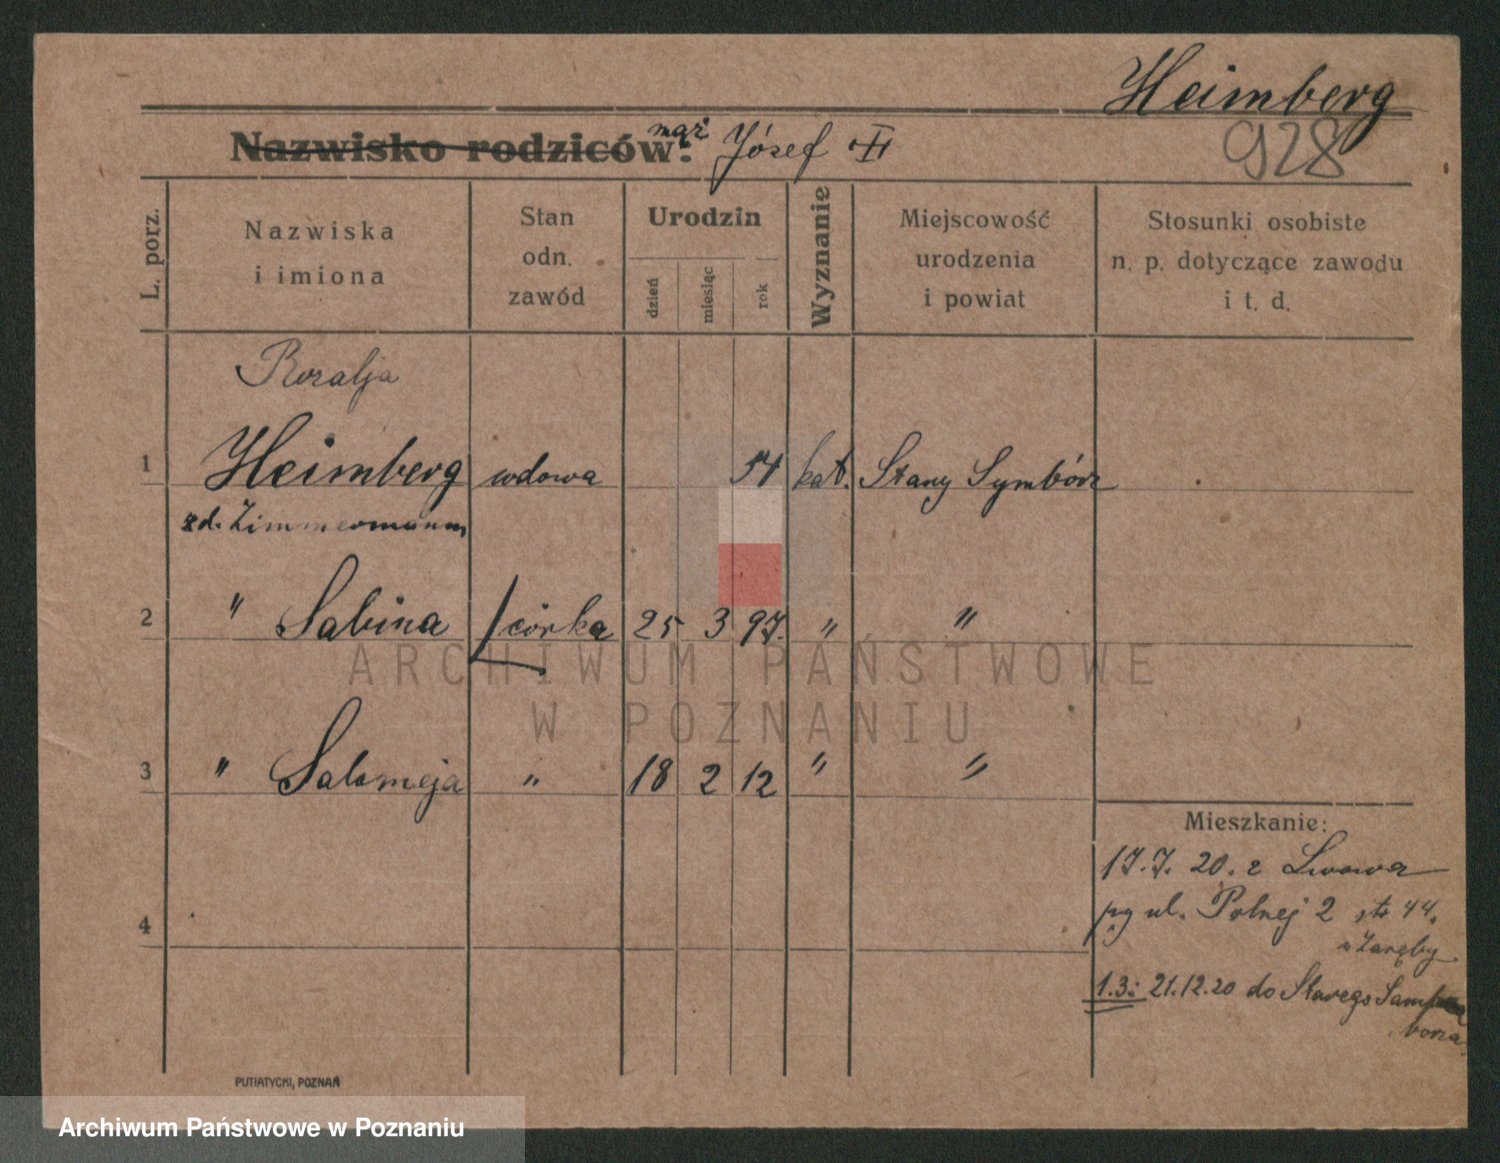 Heimberg
928
Nazwisko rodziców: mąż Józef
L. porz.
Nazwiska i imiona
Stan odn. zawód
Urodzin
dzień
miesiąc
rok
Wyznanie
Miejscowość urodzenia i powiat
Stosunki osobiste n. p. dotyczące zawodu i t. d.
Rozalja
1 Heimberg wdowa 54 kat. Stary Symbórz
zd. Zimmermann
2 " Sabina córka 25 3 97. " "
3 " Salomeja " 18 2 12 " "
4
Mieszkanie:
17.7. 20. z Lwowa
pg ul. Polnej 2 str 44.
u Zaręby
1.3: 21.12.20 do Starego Sam
borza
PUTIATYCKI, POZNAŃ
ARCHIWUM PAŃSTWOWE
W POZNANIU
Archiwum Państwowe w Poznaniu